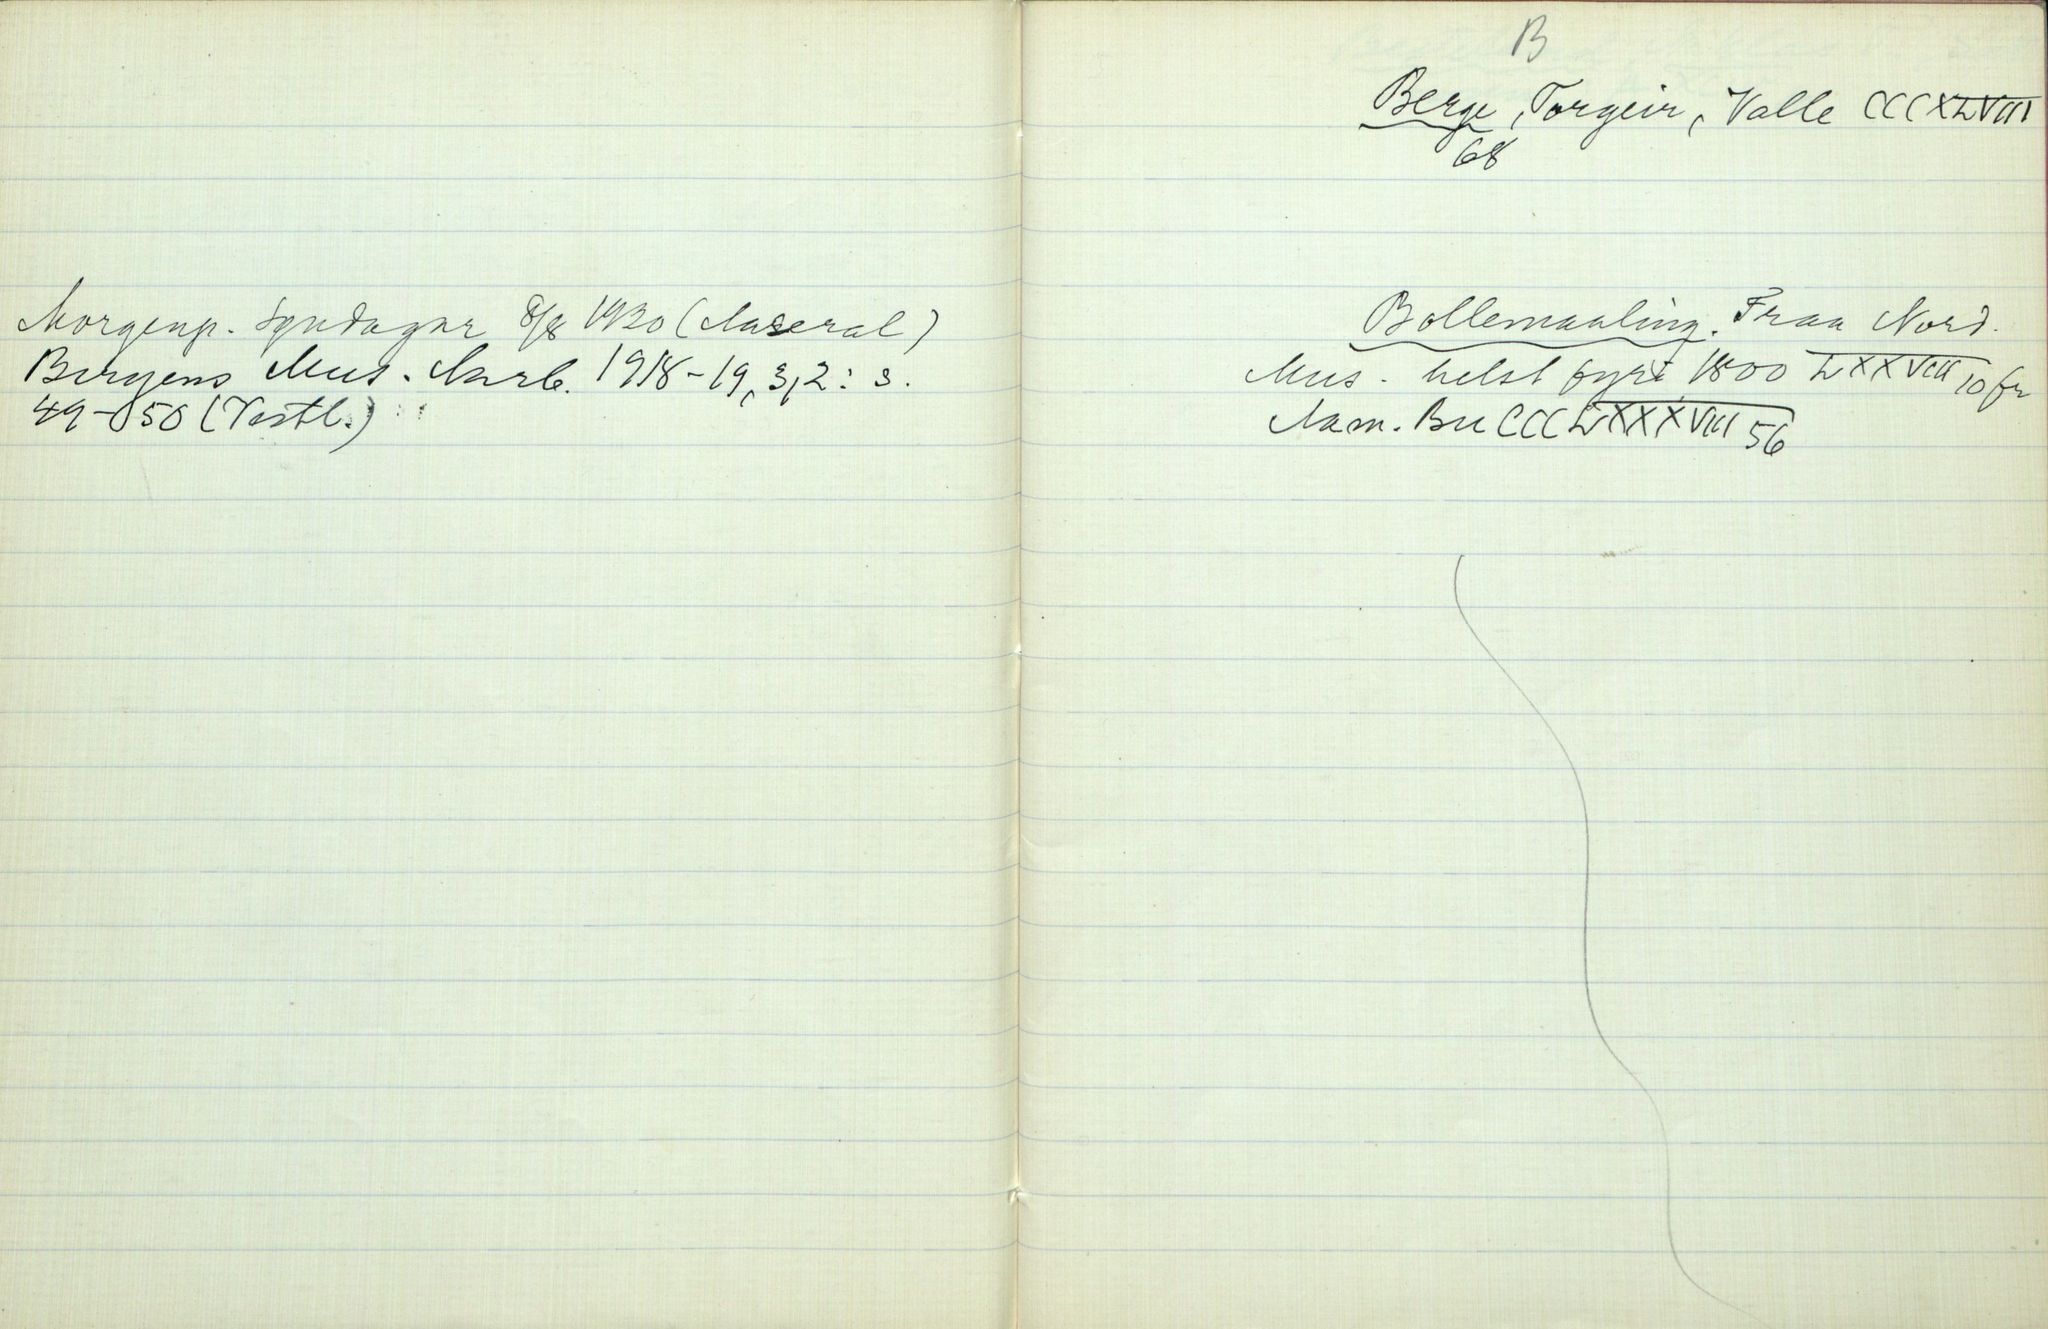 Morgenp. Syndagnr 8/8 1930 (Aaseral)
Bergens Mus. Aarb. 1918-19, 3, 2: s.
49-50 (Vestl.)
B
Berge, Torgeir, Valle CCCXLVIII
68
Bollemaaling. Fraa Nord.
Mus. helst fyre 1800 LXXVIII 10 fr
Aam. Bu CCCLXXXVIII 56